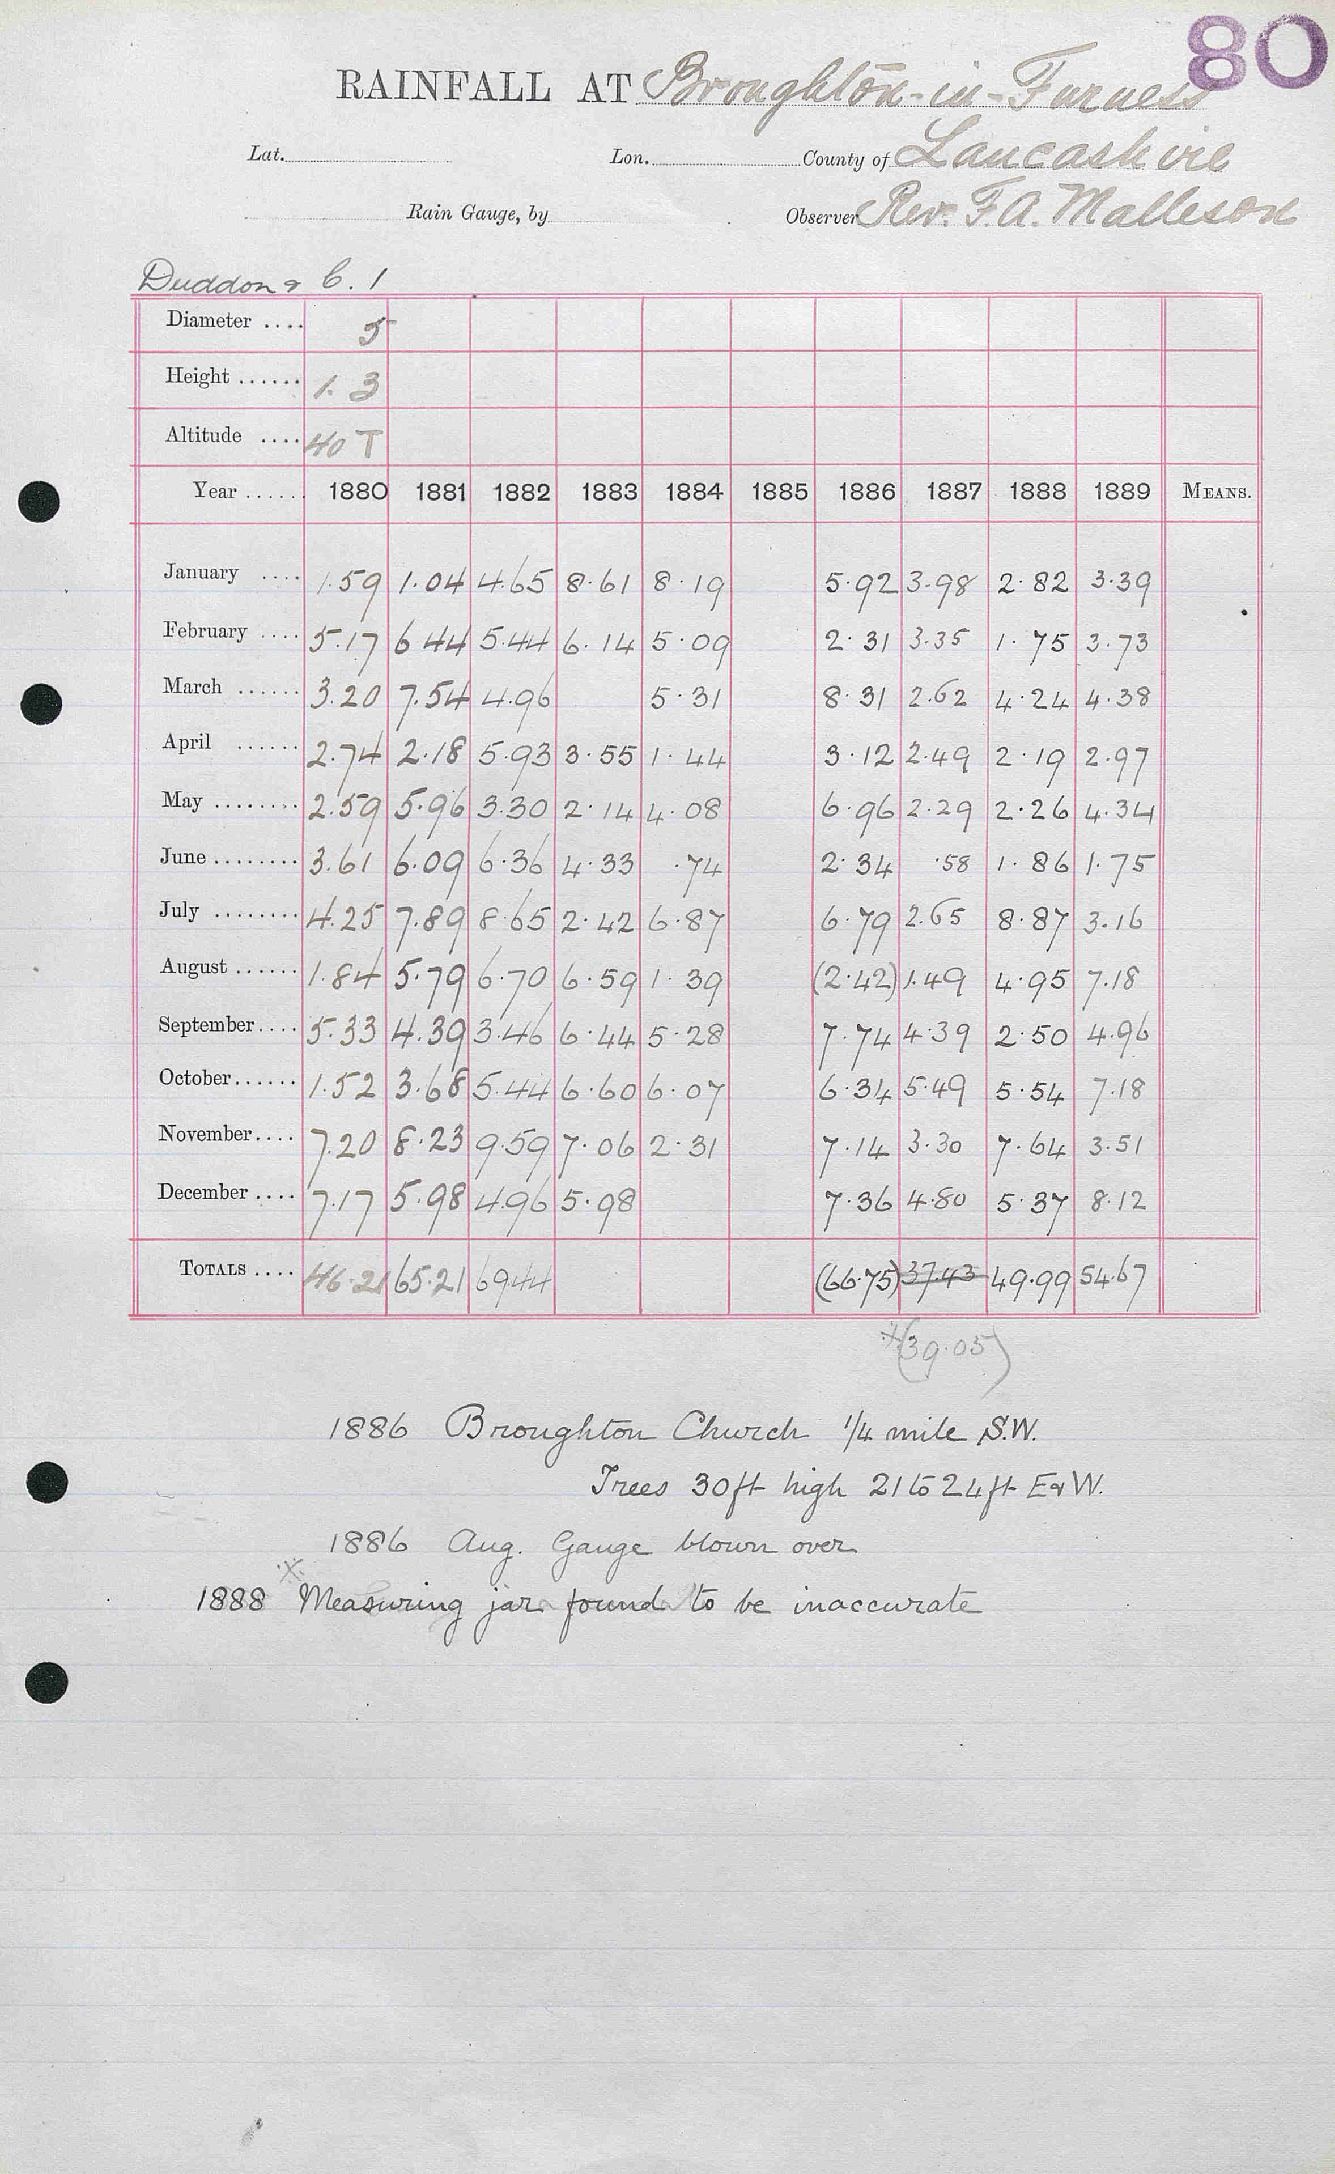 80
RAINFALL AT Broughton-in-Furness
Lat. Lon. County of Lancashire
Rain Gauge, by Observer Rev. F.A. Malleson
Duddon & C. 1
Diameter .... 5
Height ...... 1. 3
Altitude .... 40 T
Year ...... 1880 1881 1882 1883 1884 1885 1886 1887 1888 1889 MEANS.
January .... 1.59 1.04 4.65 8.61 8.19 5.92 3.98 2.82 3.39
February .... 5.17 6 44 5.44 6.14 5.09 2.31 3.35 1.75 3.73
March ...... 3.20 7.54 4.96 5.31 8.31 2.62 4.24 4.38
April ...... 2.74 2.18 5.93 3.55 1.44 3.12 2.49 2.19 2.97
May ........ 2.59 5.96 3.30 2.14 4.08 6.96 2.29 2.26 4.34
June ........ 3.61 6.09 6.36 4.33 .74 2.34 .58 1.86 1.75
July ........ 4.25 7.89 8.65 2.42 6.87 6.79 2.65 8.87 3.16
August ...... 1.84 5.79 6.70 6.59 1.39 (2.42) 1.49 4.95 7.18
September.... 5.33 4.39 3.46 6.44 5.28 7.74 4.39 2.50 4.96
October...... 1.52 3.68 5.44 6.60 6.07 6.34 5.49 5.54 7.18
November.... 7.20 8.23 9.59 7.06 2.31 7.14 3.30 7.64 3.51
December .... 7.17 5.98 4.96 5.98 7.36 4.80 5.37 8.12
TOTALS .... 46.21 65.21 6944 (66.75) 37.43 49.99 54.67
*(39.05)
1886 Broughton Church 1/4 mile S.W.
Trees 30ft high 21 to 24ft E & W.
1886 Aug. Gauge blown over
1888 * Measuring jar found to be inaccurate